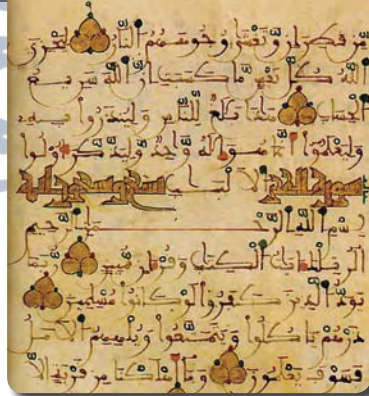 من قطران وتغشى وجوههم النار ليجزي
الله كل نفس ما كسبت إن الله سريع
الحساب هذا بلغ للناس ولينذروا به
وليعلموا أنما هو إله واحد وليذكر أولوا
سورة الحجر الألبب تسع وتسعون آية
بسم الله الرحمن الرحيم
الر تلك ءايت الكتب وقرءان مبين ربما
يود الذين كفروا لو كانوا مسلمين
ذرهم ياكلوا ويتمتعوا ويلههم الأمل
فسوف يعلمون وما أهلكنا من قرية إلا